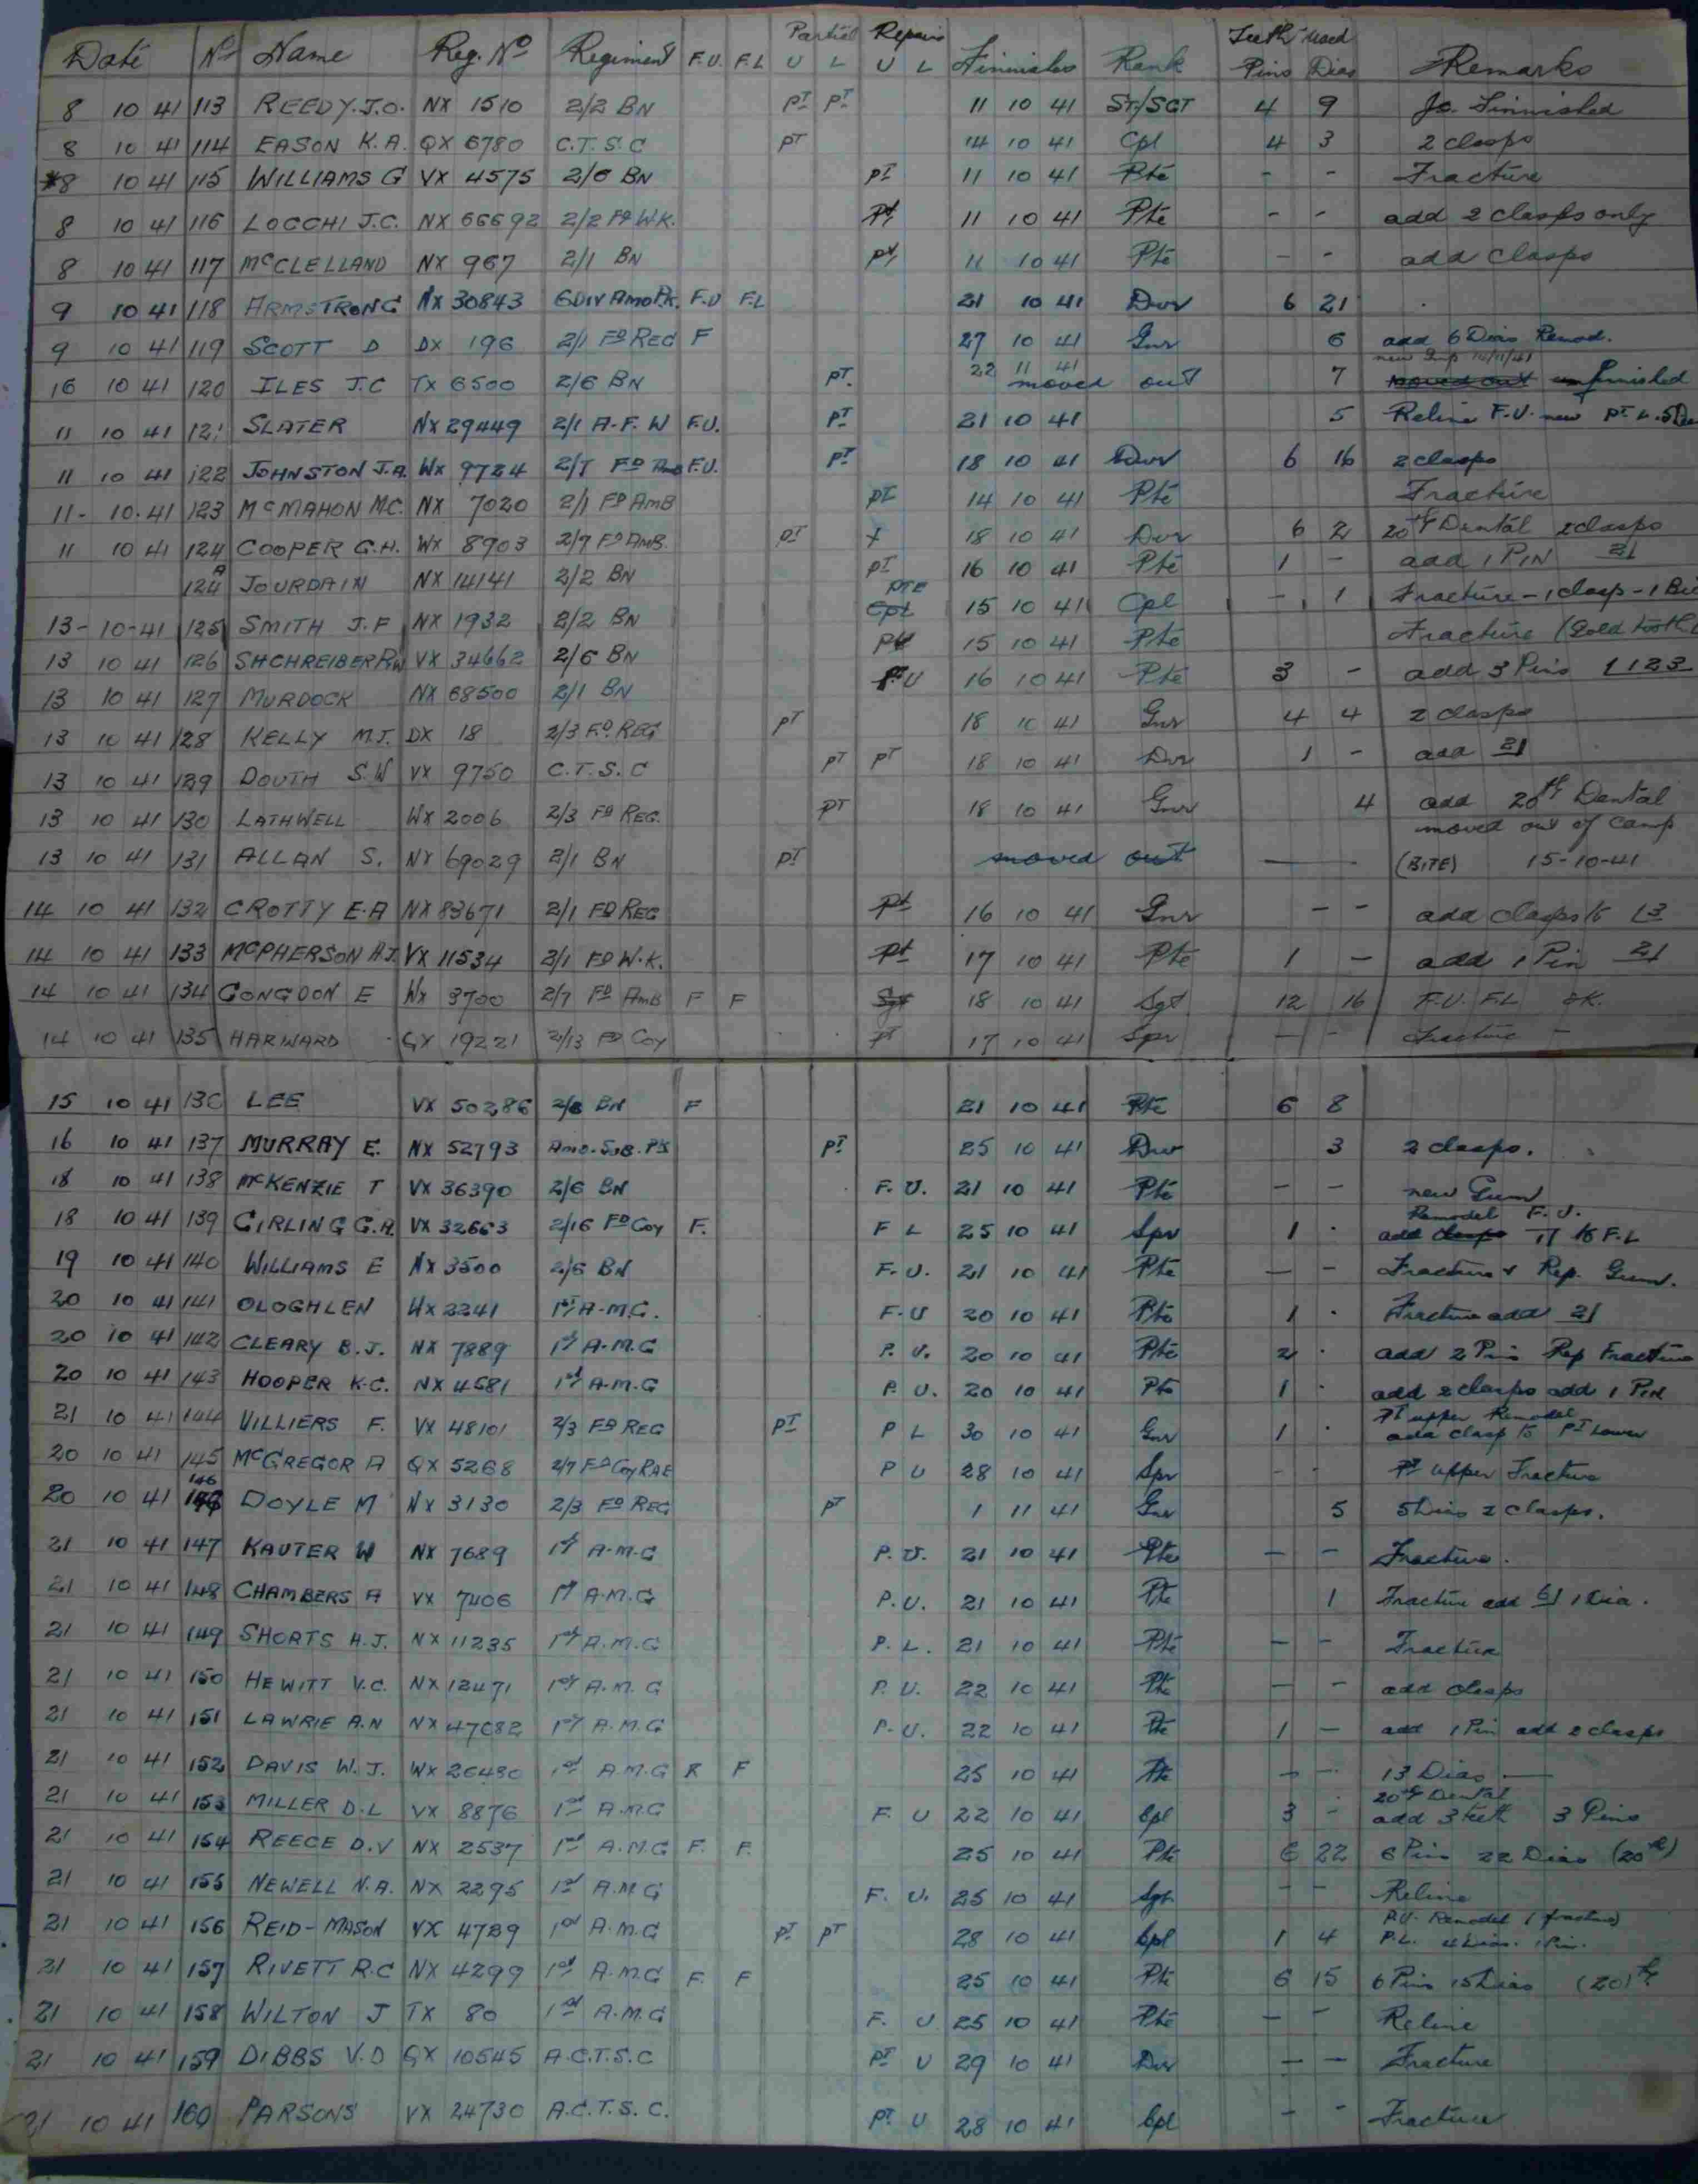 Partial Repairs Teeth Used
Date No Name Reg. No Regiment F.U. F.L U L U L Finnishes Rank Pins Dias Remarks
8 10 41 113 REEDY. J.O. NX 1510 2/2 BN PT PT 11 10 41 ST/SGT 4 9 Jo. Finnished
8 10 41 114 EASON K.A. QX 6780 C.T.S.C PT 14 10 41 Cpl 4 3 2 clasps
*8 10 41 115 WILLIAMS G VX 4575 2/6 BN PT 11 10 41 Pte - - Fracture
8 10 41 116 LOCCHI J.C. NX 66692 2/2 FD W.K. Pt 11 10 41 Pte - - add 2 clasps only
8 10 41 117 McCLELLAND NX 967 2/1 BN Pt 11 10 41 Pte - - add clasps
9 10 41 118 ARMSTRONG NX 30843 6 DIV AMO P.K. F.U F.L 21 10 41 Dvr 6 21
9 10 41 119 SCOTT D DX 196 2/1 FD REG F 27 10 41 Gnr 6 add 6 Dias Remod.
22 11 41 new Imp 14/11/41
16 10 41 120 ILES J.C TX 6500 2/6 BN PT. moved out 7 moved out unfinished
11 10 41 121 SLATER NX 29449 2/1 A.F.W F.U. PT 21 10 41 5 Reline F.U. new PT L. 5 Dias
11 10 41 122 JOHNSTON J.A. WX 9724 2/7 FD Amb F.U. PT 18 10 41 Dvr 6 16 2 clasps
11- 10-41 123 McMAHON M.C. NX 7020 2/1 FD AMB PT 14 10 41 Pte Fracture
11 10 41 124 COOPER G.H. WX 8903 2/7 FD AMB. PT + 18 10 41 Dvr 6 2 20th Dental 2 clasps
124A JOURDAIN NX 14141 2/2 BN PT 16 10 41 Pte 1 - add 1 PIN 2|
PTE
13-10-41 125 SMITH J.F NX 1932 2/2 BN Cpl 15 10 41 Cpl - 1 Fracture - 1 clasp - 1
13 10 41 126 SHCHREIBER R.W VX 34662 2/6 BN PU 15 10 41 Pte Fracture (Gold tooth
13 10 41 127 MURDOCK NX 68500 2/1 BN P.U 16 10 41 Pte 3 - add 3 Pins 1123
13 10 41 128 KELLY M.J. DX 18 2/3 FD REG PT 18 10 41 Gnr 4 4 2 clasps
13 10 41 129 DOUTH S.W VX 9750 C.T.S.C PT PT 18 10 41 Dvr 1 - add 2|
13 10 41 130 LATHWELL WX 2006 2/3 FD REG. PT 18 10 41 Gnr 4 add 20th Dental
moved out of camp
13 10 41 131 ALLAN S. NX 69029 2/1 BN PT moved out — (BITE) 15-10-41
14 10 41 132 CROTTY E.A NX 83671 2/1 FD REG Pt 16 10 41 Gnr - - add clasps to |3
14 10 41 133 McPHERSON H.J. VX 11534 2/1 FD W.K. Pt 17 10 41 Pte 1 - add 1 Pin 2|
14 10 41 134 CONGDON E WX 3700 2/7 FD AMB F F Sgt 18 10 41 Sgt 12 16 F.U. F.L OK.
14 10 41 135 HARWARD QX 19221 2/13 FD COY PT 17 10 41 Spr - - Fracture -
15 10 41 136 LEE VX 50286 2/6 BN F 21 10 41 Pte 6 8
16 10 41 137 MURRAY E. NX 52793 AMO. SUB. PK PT 25 10 41 Dvr 3 2 clasps.
18 10 41 138 McKENZIE T VX 36390 2/6 BN F.U. 21 10 41 Pte - - new Gum
Remodel F.U.
18 10 41 139 GIRLING G.A. VX 32663 2/16 FD COY F. F L 25 10 41 Spr 1 . add clasps 17 to F.L
19 10 41 140 WILLIAMS E NX 3500 2/6 BN F.U. 21 10 41 Pte - - Fracture & Rep. Gum.
20 10 41 141 OLOGHLEN WX 2241 1st A.M.G. F.U 20 10 41 Pte 1 . Fracture add 2|
20 10 41 142 CLEARY B.J. NX 7889 1st A.M.G P.U. 20 10 41 Pte 2 . add 2 Pins Rep Fracture
20 10 41 143 HOOPER K.C. NX 4581 1st A.M.G P.U. 20 10 41 Pte 1 . add 2 clasps add 1 PIN
PT upper Remodel
21 10 41 144 VILLIERS F. VX 48101 2/3 FD REG PT P L 30 10 41 Gnr 1 . add clasp to PT Lower
20 10 41 145 McGREGOR A QX 5268 2/7 FD COY RAE P U 28 10 41 Spr - - PT upper Fracture
20 10 41 146 DOYLE M NX 3130 2/3 FD REG PT 1 11 41 Gnr 5 5 Dias 2 clasps.
21 10 41 147 KAUTER W NX 7689 1st A.M.G P.U. 21 10 41 Pte - - Fracture.
21 10 41 148 CHAMBERS A VX 7406 1st A.M.G P.U. 21 10 41 Pte 1 Fracture add 6| 1 Dia.
21 10 41 149 SHORTS H.J. NX 11235 1st A.M.G P.L. 21 10 41 Pte - - Fracture
21 10 41 150 HEWITT V.C. NX 12471 1st A.M.G P.U. 22 10 41 Pte - - add clasps
21 10 41 151 LAWRIE A.N NX 47682 1st A.M.G P.U. 22 10 41 Pte 1 - add 1 Pin add 2 clasps
21 10 41 152 DAVIS W.J. WX 26430 1st A.M.G F 25 10 41 Pte - - 13 Dias —
20th Dental
21 10 41 153 MILLER D.L VX 8876 1st A.M.G F. U 22 10 41 Cpl 3 - add 3 teeth 3 Pins
21 10 41 154 REECE D.V NX 2537 1st A.M.G F. F. 25 10 41 Pte 6 22 6 Pins 22 Dias (20th)
21 10 41 155 NEWELL N.A. NX 2295 1st A.M.G F. U. 25 10 41 Sgt. - - Reline
P.U. Remodel (fracture)
21 10 41 156 REID-MASON VX 4789 1st A.M.G PT PT 28 10 41 Cpl 1 4 P.L. 4 Dias. 1 Pin.
21 10 41 157 RIVETT R.C NX 4299 1st A.M.G F. F 25 10 41 Pte 6 15 6 Pins 15 Dias (20)th
21 10 41 158 WILTON J TX 80 1st A.M.G F. U 25 10 41 Pte - - Reline
21 10 41 159 DIBBS V.D QX 10545 A.C.T.S.C PT U 29 10 41 Dvr - - Fracture
21 10 41 160 PARSONS VX 24730 A.C.T.S.C. PT U 28 10 41 Cpl - - Fracture